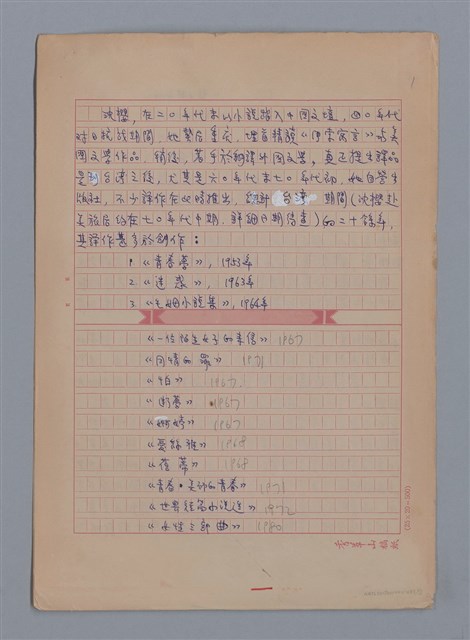 1
沈櫻，在二〇年代末以小說踏入中國文壇，四〇年代
對日抗戰期間，她暫居重慶，埋首精讀《伊索寓言》與美
國文學作品，稍後，著手於翻譯外國文學，真正提生譯品
是到台灣之後，尤其是六〇年代末七〇年代初，她自營出
版社，不少譯作在此時推出，台灣期間（沈櫻赴
美旅居約在七〇年代中期，詳細日期待查）的二十餘年，
其譯作甚多於創作：
1.《青春夢》，1953年
2.《迷惑》，1963年
3.《毛姆小說集》，1964年
《一位陌生女子的來信》 1967
《同情的罪》 1971
《怕》 1967.
《斷夢》 1967
《婀婷》 1967
《愛絲雅》 1968
《蓓蒂》 1968
《青春‧美妙的青春》 1971
《世界短名小說選》 1972
《女性三部曲》 1980
青華山稿紙